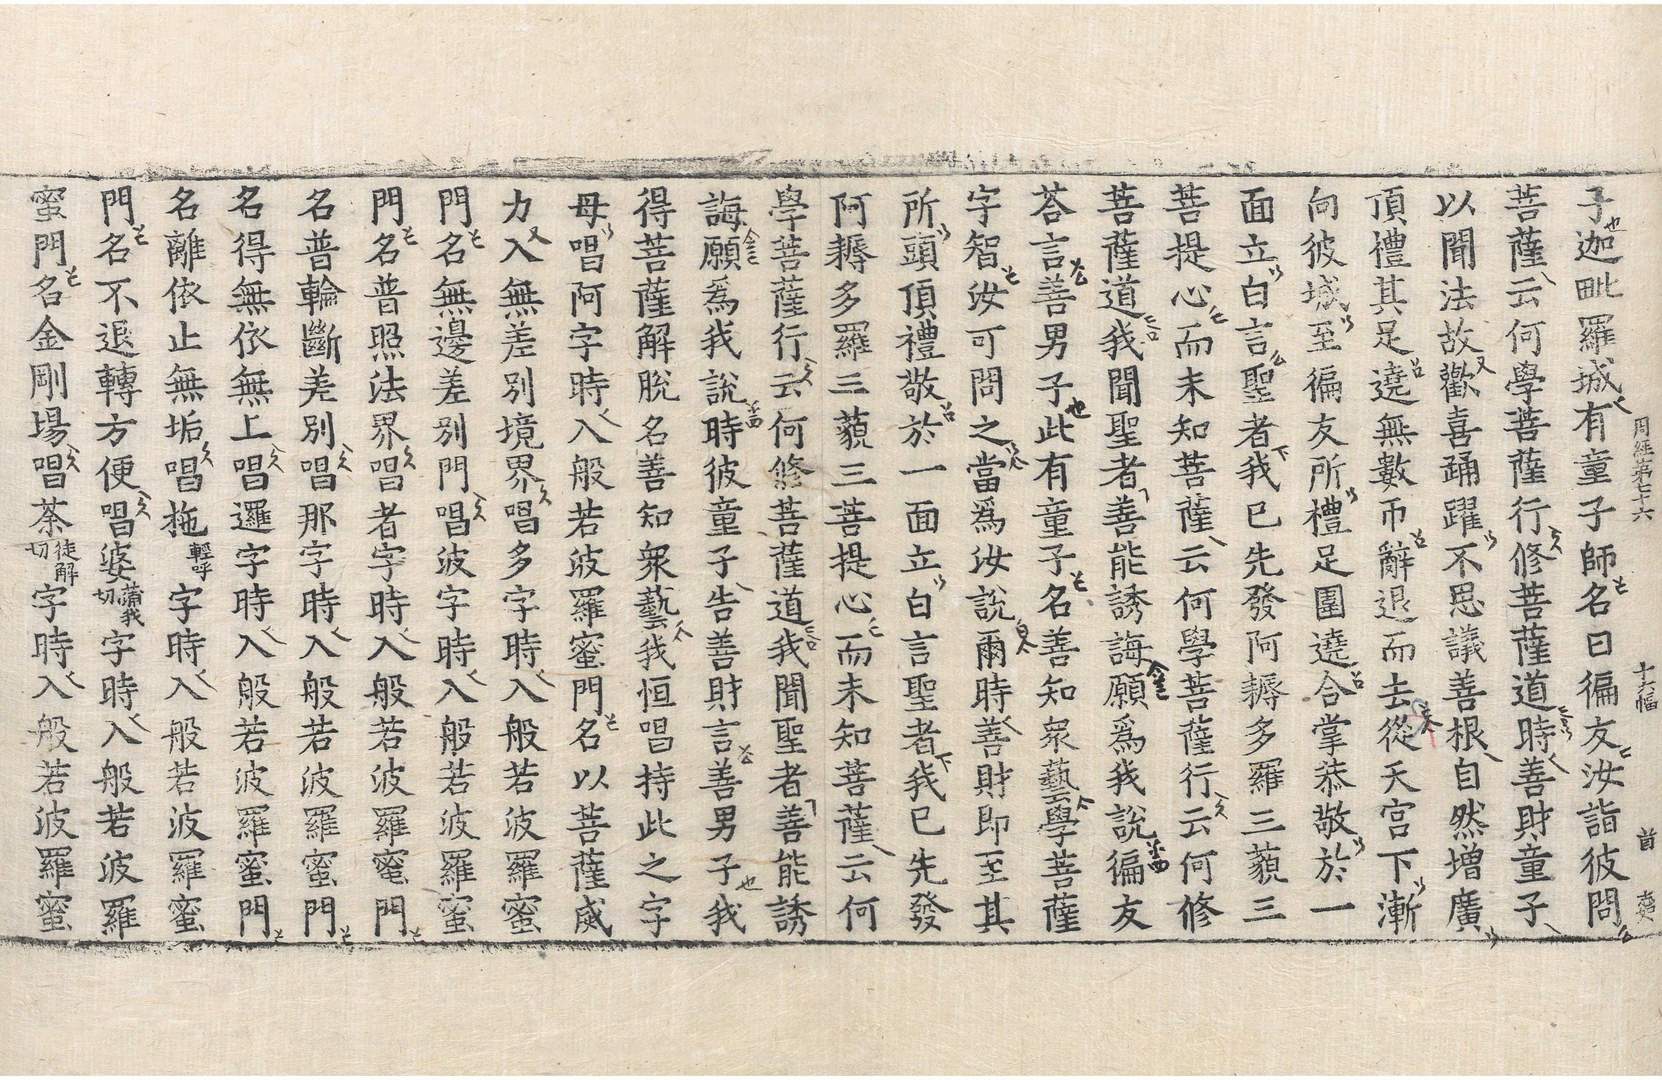 周經第七十六 十六幅 首
子迦毗羅城有童子師名曰徧友汝詣彼問
菩薩云何學菩薩行修菩薩道時善財童子
以聞法故歡喜踊躍不思議善根自然增廣
頂禮其足遶無數帀辭退而去從天宮下漸
向彼城至徧友所禮足圍遶合掌恭敬於一
面立白言聖者我已先發阿耨多羅三藐三
菩提心而未知菩薩云何學菩薩行云何修
菩薩道我聞聖者善能誘誨願爲我說徧友
荅言善男子此有童子名善知衆藝學菩薩
字智汝可問之當爲汝說爾時善財即至其
所頭頂禮敬於一面立白言聖者我已先發
阿耨多羅三藐三菩提心而未知菩薩云何
學菩薩行云何修菩薩道我聞聖者善能誘
誨願爲我說時彼童子告善財言善男子我
得菩薩解脫名善知衆藝我恒唱持此之字
母唱阿字時入般若波羅蜜門名以菩薩威
力入無差別境界唱多字時入般若波羅蜜
門名無邊差別門唱波字時入般若波羅蜜
門名普照法界唱者字時入般若波羅蜜門
名普輪斷差別唱那字時入般若波羅蜜門
名得無依無上唱邏字時入般若波羅蜜門
名離依止無垢唱拖輕呼字時入般若波羅蜜
門名不退轉方便唱婆蒲我切字時入般若波羅
蜜門名金剛場唱荼徒解切字時入般若波羅蜜